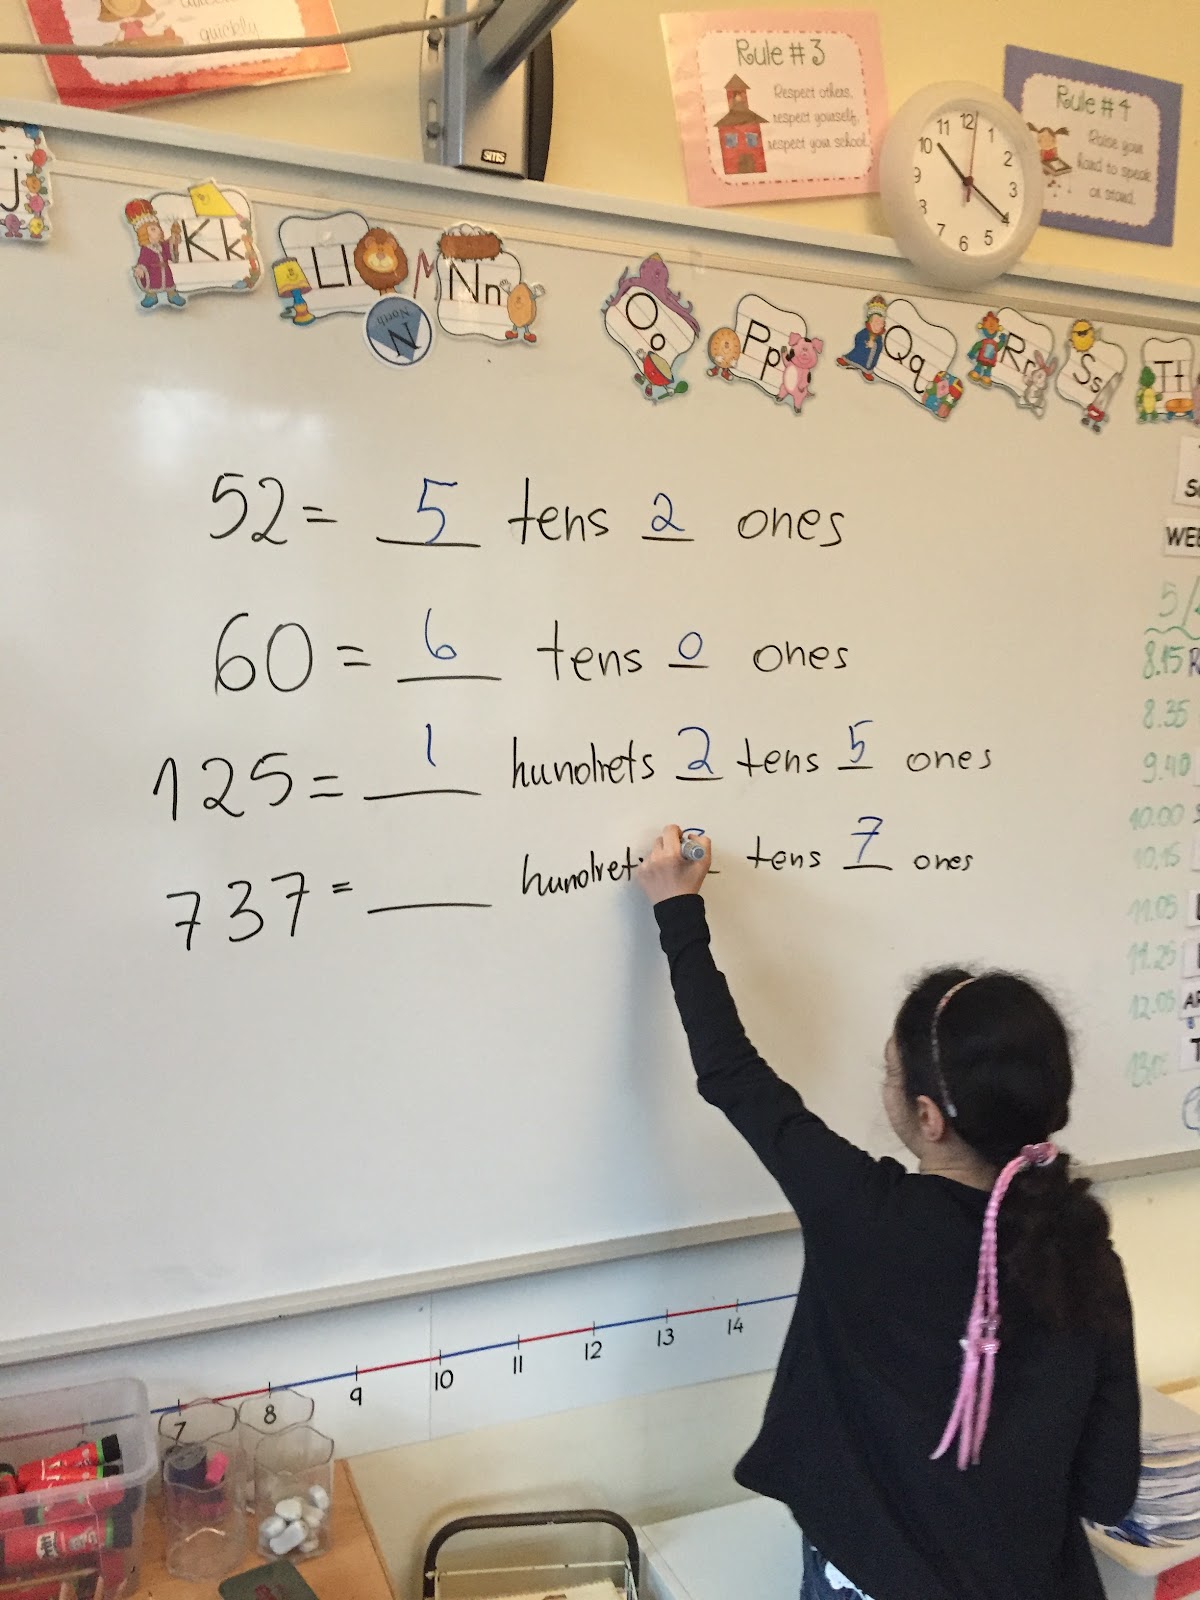 quickly
Rule #3
Respect others,
respect yourself,
respect your school.
Rule #4
Raise your
hand to speak
or stand.
11 12 1
10 2
9 3
8 4
7 6 5
j
Kk
Ll
M
Nn
N
North
Oo
Pp
Qq
Rr
Ss
Tt
52 = 5 tens 2 ones
60 = 6 tens 0 ones
125 = 1 hundrets 2 tens 5 ones
737 = hundret tens 7 ones
WEE
5/
8.15 R
8.35
9.40
10.00
10.15
11.05
11.25
12.05
13.0
7 8 9 10 11 12 13 14